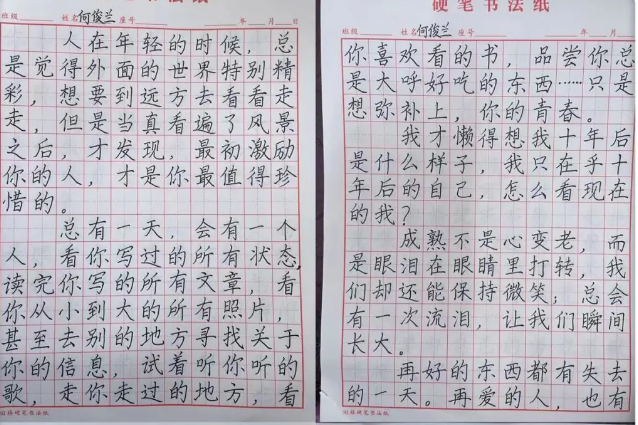 书法纸
班级 姓名 何俊兰 座号 年 月 日
人在年轻的时候，总
是觉得外面的世界特别精
彩，想要到远方去看看走
走，但是当真看遍了风景
之后，才发现，最初激励
你的人，才是你最值得珍
惜的。
总有一天，会有一个
人，看你写过的所有状态，
读完你写的所有文章，看
你从小到大的所有照片，
甚至去别的地方寻找关于
你的信息，试着听你听的
歌，走你走过的地方，看
田格硬笔书法纸
硬笔书法纸
班级 姓名 何俊兰 座号 年 月
你喜欢看的书，品尝你总
是大呼好吃的东西……只是
想弥补上，你的青春。
我才懒得想我十年后
是什么样子，我只在乎十
年后的自己，怎么看现在
的我？
成熟不是心变老，而
是眼泪在眼睛里打转，我
们却还能保持微笑；总会
有一次流泪，让我们瞬间
长大。
再好的东西都有失去
的一天。再爱的人，也有
田格硬笔书法纸